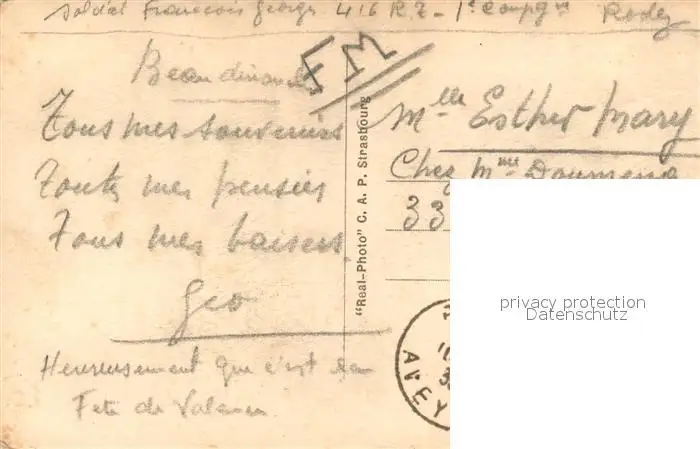 Soldat François Georges 416 R.I. - 1e Compgie Rodez
FM
Beau dimanche
Tous mes souvenirs
Toutes mes pensées
Tous mes baisers.
Geo
Heureusement que c'est la
Fete de Valence
"Real-Photo" C. A. P. Strasbourg
Mlle Esther Mary
Chez Mme Doumeng
33
AVEY
privacy protection
Datenschutz